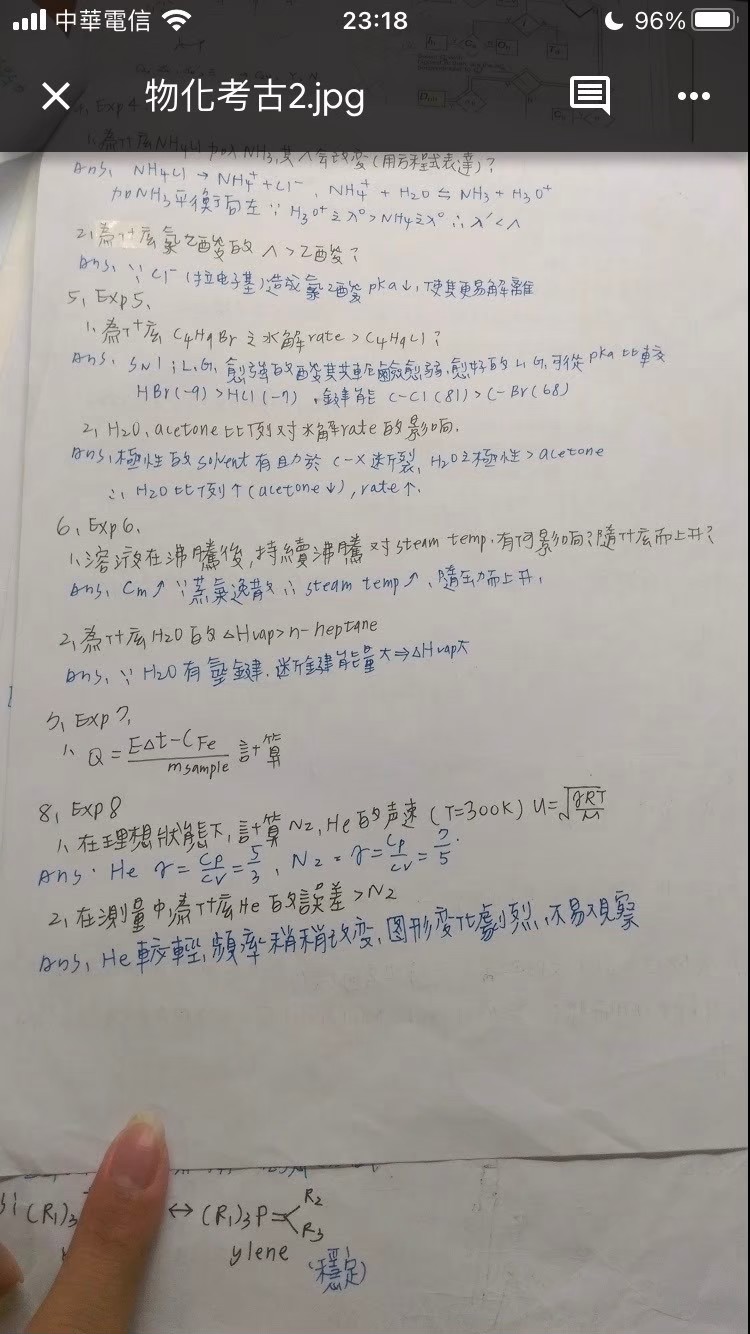 中華電信 23:18 96%
物化考古2.jpg
Exp4
1、為什庅NH4Cl加入NH3,其Λ會改變(用方程式表達)?
Ans、NH4Cl → NH4+ + Cl-、NH4+ + H2O ⇆ NH3 + H3O+
加NH3平衡向左 ∵ H3O+之λ°>NH4之λ° ∴ Λ'<Λ
2、為什庅氯乙酸的Λ>乙酸?
Ans、∵ Cl-(拉电子基)造成氯乙酸pka↓,使其更易解離
5、Exp5、
1、為什庅C4H9Br之水解rate>C4H9Cl?
Ans、SN1:L.G.愈強的酸其共軛鹼愈弱,愈好的L.G.可從pka比較
HBr(-9)>HCl(-7)、鍵能 C-Cl(81)>C-Br(68)
2、H2O、acetone比例对水解rate的影响.
Ans、極性的solvent有助於C-X断裂,H2O之極性>acetone
∴ H2O比例↑(acetone↓),rate↑.
6、Exp6、
1、溶液在沸騰後,持續沸騰对steam temp.有何影响?隨什庅而上升?
Ans、Cm↗ ∵蒸氣逸散 ∴ steam temp↗、隨壓力而上升.
2、為什庅H2O的△Hvap>n-heptane
Ans、∵ H2O有氫鍵.断鍵能量大⇒△Hvap大
7、Exp7、
1、Q=EΔt-CFe/msample 計算
8、Exp8
1、在理想狀態下,計算N2,He的声速(T=300K) u=√γRT/M
Ans. He γ=Cp/Cv=5/3、N2=γ=Cp/Cv=7/5.
2、在測量中,為什庅He的誤差>N2
Ans、He較輕,頻率稍稍改变,图形变化劇烈,不易观察
(R1)3 ↔ (R1)3P= R2 R3
ylene
(穩定)